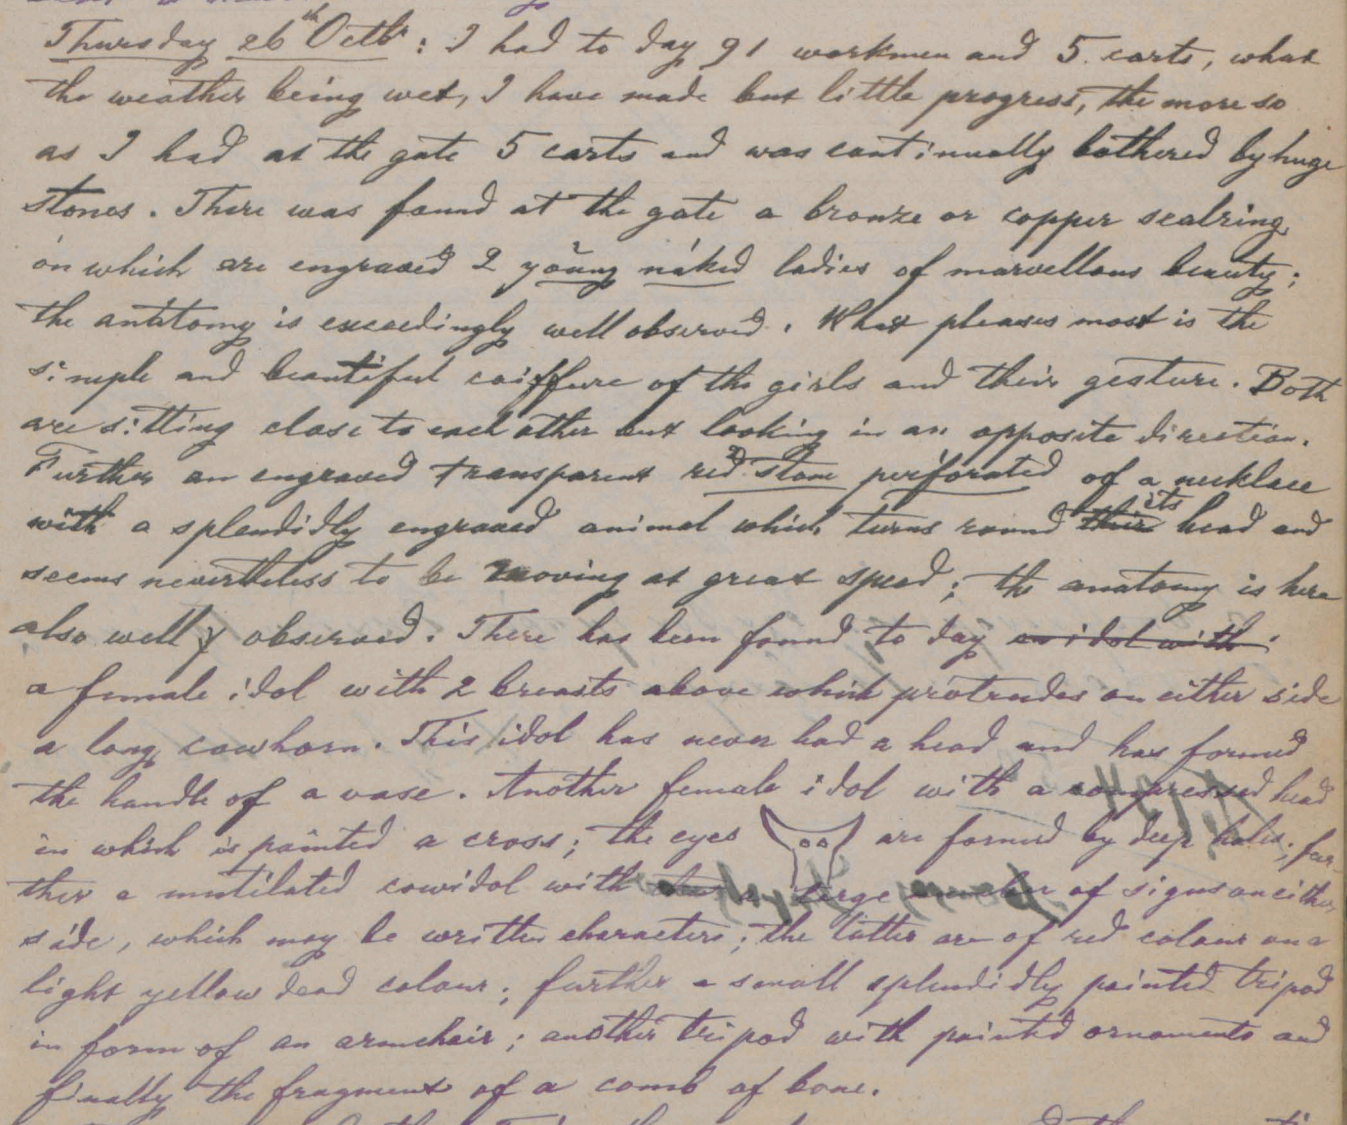 Thursday 26th Octbr: I had to day 91 workmen and 5 carts, what
the weather being wet, I have made but little progress, the more so
as I had at the gate 5 carts and was continually bothered by huge
stones. There was found at the gate a bronze or copper sealring,
on which are engraved 2 young naked ladies of marvellous beauty;
the antitomy is exceedingly well observed. What pleases most is the
simple and beautiful coiffure of the girls and their gesture. Both
are sitting close to each other but looking in an opposite direction.
Further an engraved transparent red stone perforated of a necklace
with a splendidly engraved animal which turns round their its head and
seems nevertheless to be moving at great speed; the anatomy is here
also well y observed. There has been found to day an idol with
a female idol with 2 breasts above which protrudes on either side
a long cowhorn. This idol has never had a head and has formed
the handle of a vase. Another female idol with a compressed head
in which is painted a cross; the eyes are formed by deep holes; fur-
ther a mutilated cowidol with large number of signs on either
side, which may be written characters; the latter are of red colour on a
light yellow dead colour; further a small splendidly painted tripod
in form of an armchair; another tripod with painted ornaments and
finally the fragment of a comb of bone.